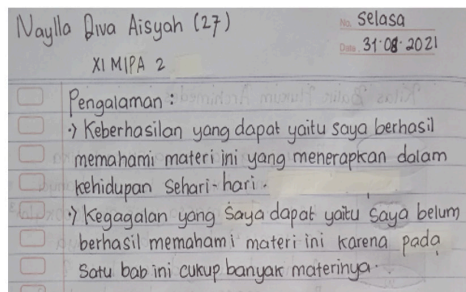 Naylla Diva Aisyah (27)
No. Selasa
Date. 31·08·2021
XI MIPA 2
Pengalaman :
·) Keberhasilan yang dapat yaitu saya berhasil
memahami materi ini yang menerapkan dalam
kehidupan sehari-hari.
·) Kegagalan yang saya dapat yaitu saya belum
berhasil memahami materi ini karena pada
satu bab ini cukup banyak materinya.